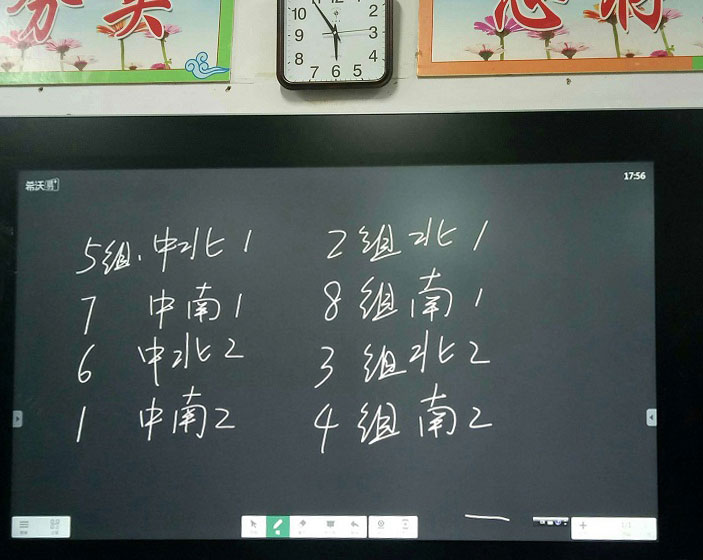 10
11
12
1
2
9
3
8
4
7 6 5
希沃
17:56
5组.中北1
2组北1
7 中南1
8组南1
6 中北2
3组北2
1 中南2
4组南2